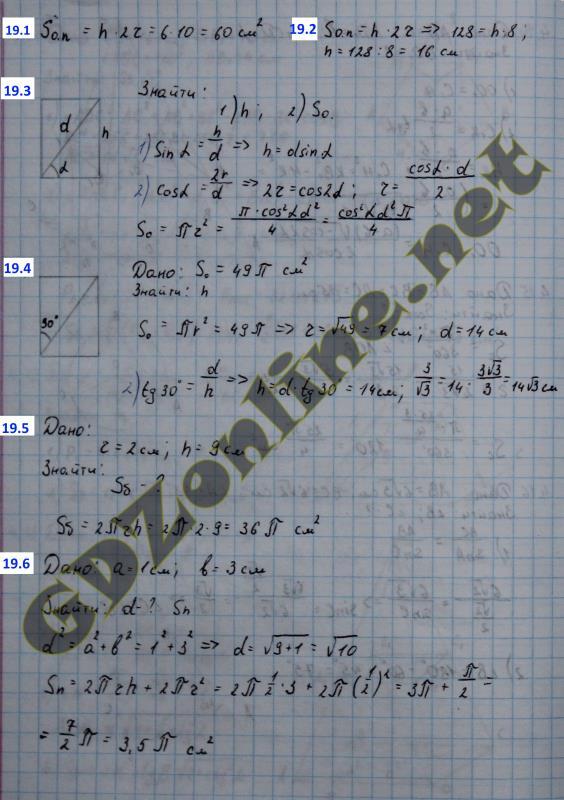 19.1 Sо.п = h · 2r = 6 · 10 = 60 см²
19.2 Sо.п = h · 2r => 128 = h · 8;
h = 128 : 8 = 16 см
19.3 Знайти:
1) h; 2) So.
d h
α
1) Sin α = h/d => h = dsin α
2) cos α = 2r/d => 2r = cos α d; r = cos α · d / 2
So = πr² = π · cos² α d² / 4 = cos² α d² π / 4
19.4 Дано: So = 49π см²
Знайти: h
30°
So = πr² = 49π => r = √49 = 7 см; d = 14 см
2) tg 30° = d/h => h = d · tg 30° = 14 см; 3/√3 = 14 · 3√3/3 = 14√3 см
19.5 Дано:
r = 2 см; h = 9 см
Знайти:
Sб - ?
Sб = 2πrh = 2π · 2 · 9 = 36π см²
19.6 Дано: a = 1 см; b = 3 см
Знайти: d - ? Sп
d² = a² + b² = 1² + 3² => d = √9+1 = √10
Sп = 2πrh + 2πr² = 2π 1/2 · 3 + 2π (1/2)² = 3π + π/2 =
= 7/2 π = 3,5π см²
GDZonline.net